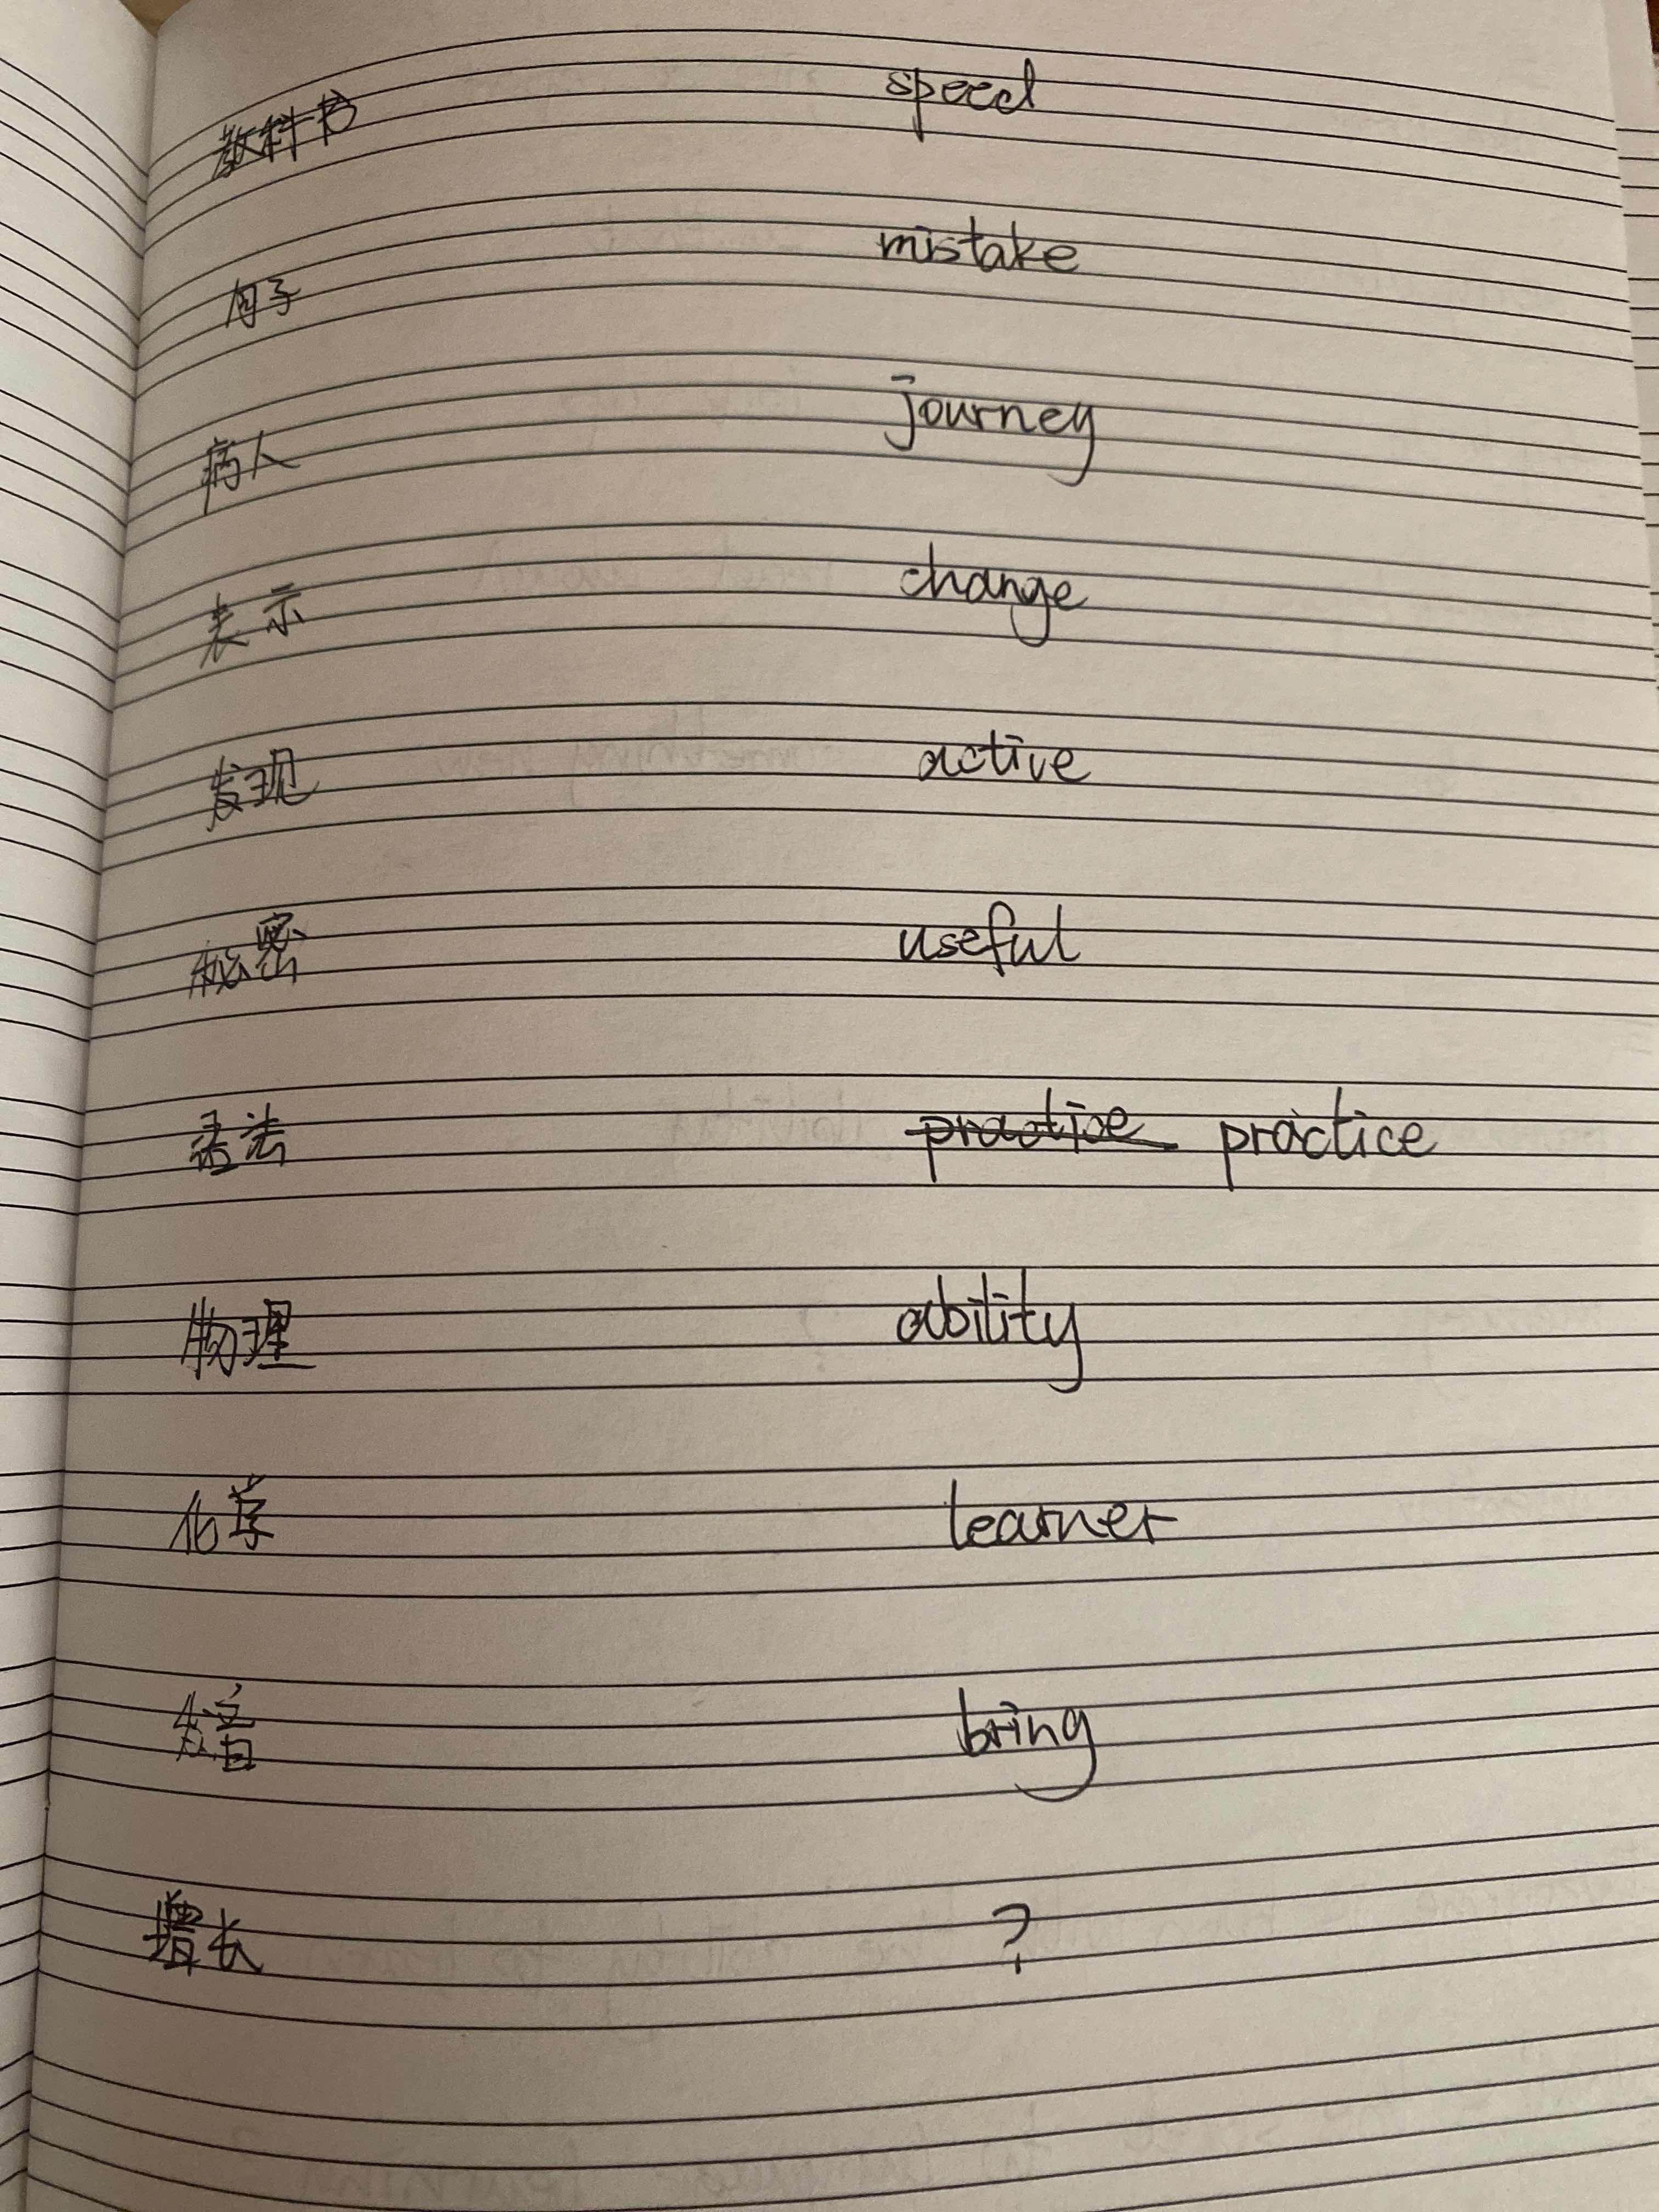 教科书 speed
句子 mistake
病人 journey
表示 change
发现 active
秘密 useful
语法 practice practice
物理 ability
化学 learner
发音 bring
增长 ?